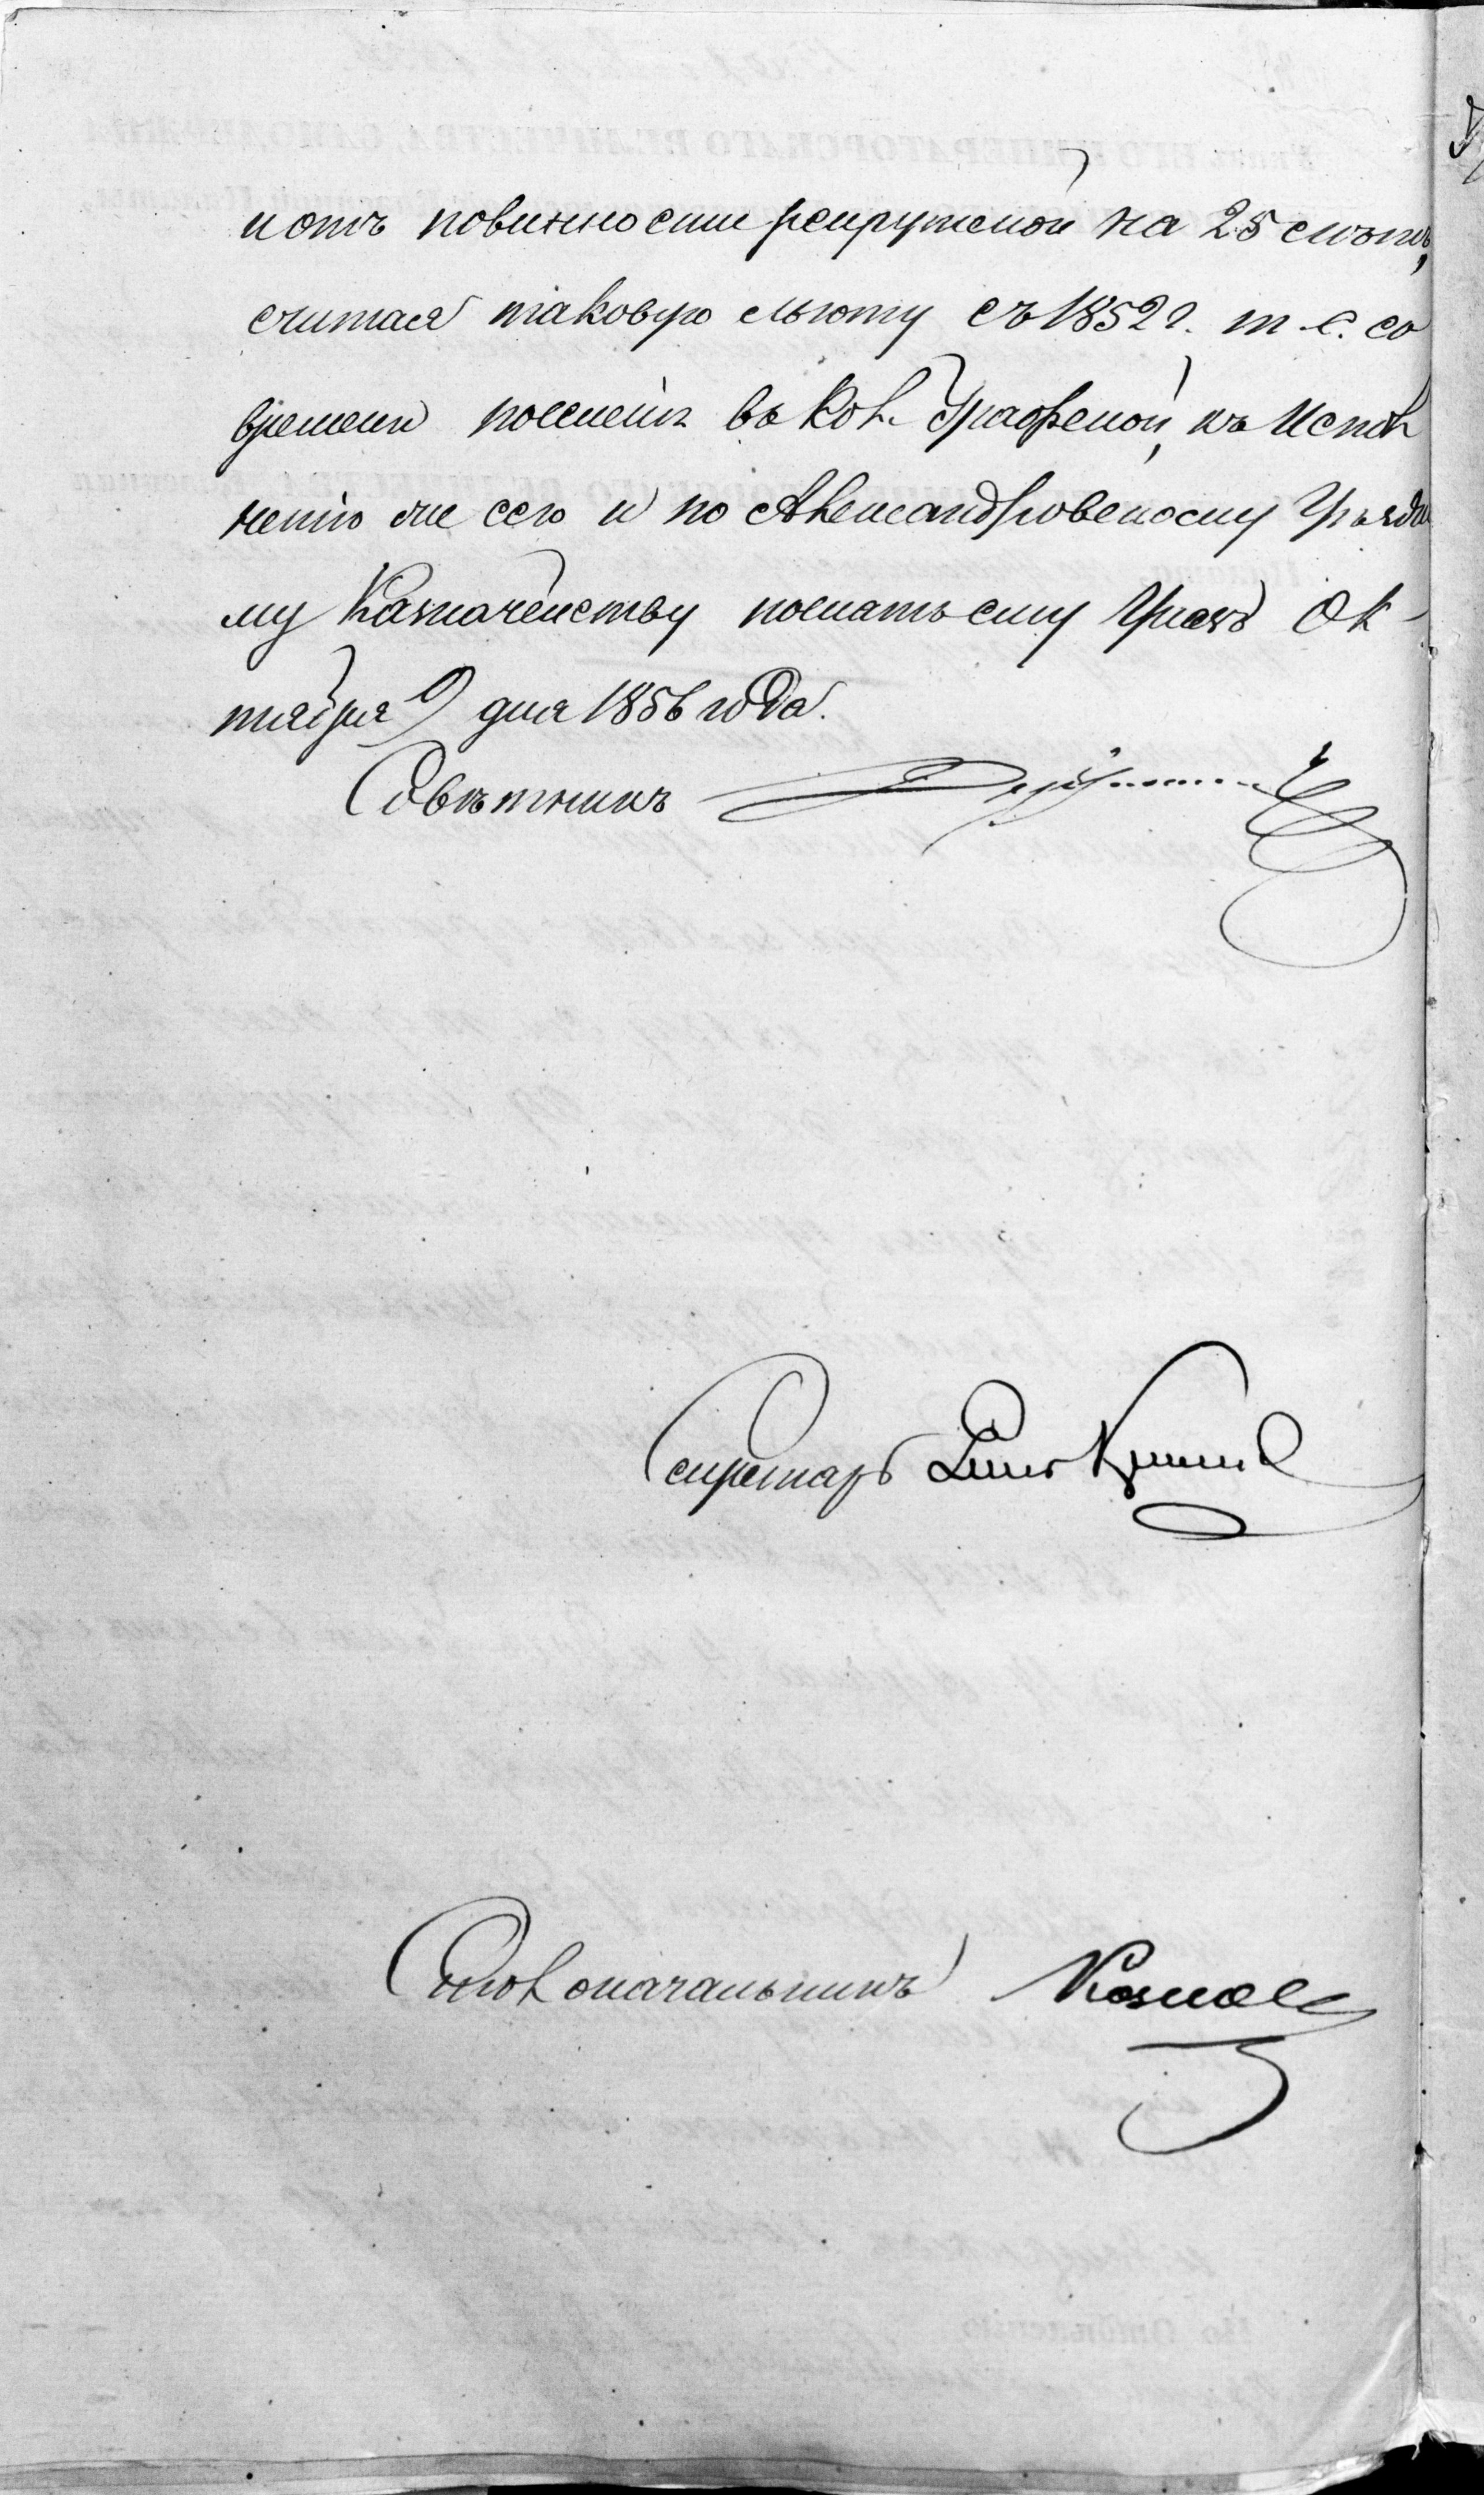 и отъ повинности рекрутской на 25 лѣтъ,
считая таковую льготу съ 1852 г. т. е. со
времени поселенія въ Кол. Графской, къ Испол
ненію же сего и по Александровскому Уѣздно
му Казначейству послать ему Указъ Ок-
тября 9 дня 1856 года.
Совѣтникъ
Секретарь
Столоначальникъ